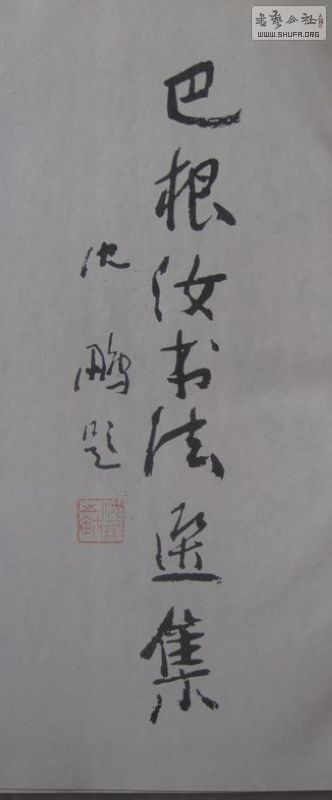 巴根汝书法选集
沈鹏题
書藝公社
WWW.SHUFA.ORG